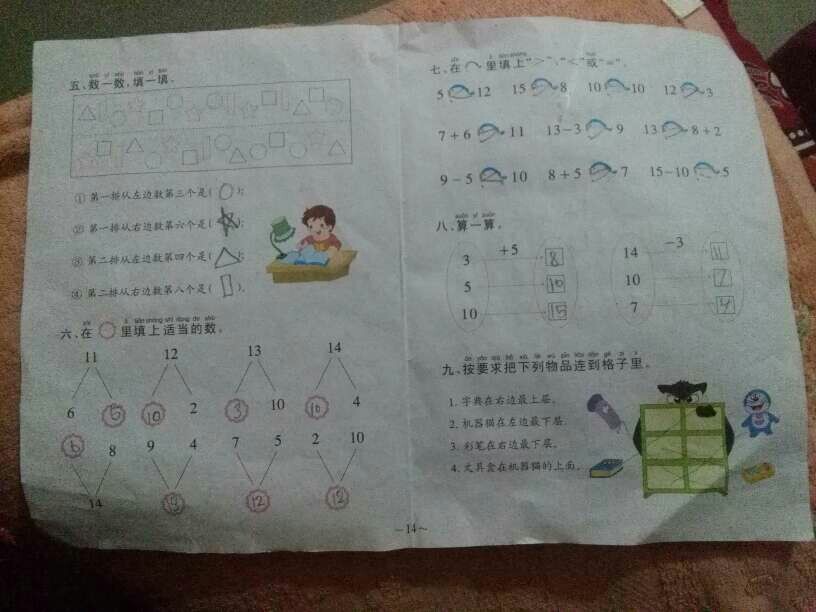 五、数一数，填一填。
①第一排从左边数第三个是( );
②第一排从右边数第六个是( );
③第二排从左边数第四个是( );
④第二排从右边数第八个是( ).
六、在 里填上适当的数。
11 12 13 14
6 5 10 2 3 10 10 4
6 8 9 4 7 5 2 10
14 13 12 12
七、在 里填上“>”、“<”或“=”。
5 12 15 8 10 10 12 3
7+6 11 13-3 9 13 8+2
9-5 10 8+5 7 15-10 5
八、算一算。
+5 -3
3 8 14 11
5 10 10 7
10 15 7 4
九、按要求把下列物品连到格子里。
1. 字典在右边最上层。
2. 机器猫在左边最下层.
3. 彩笔在右边最下层。
4. 文具盒在机器猫的上面。
~14~